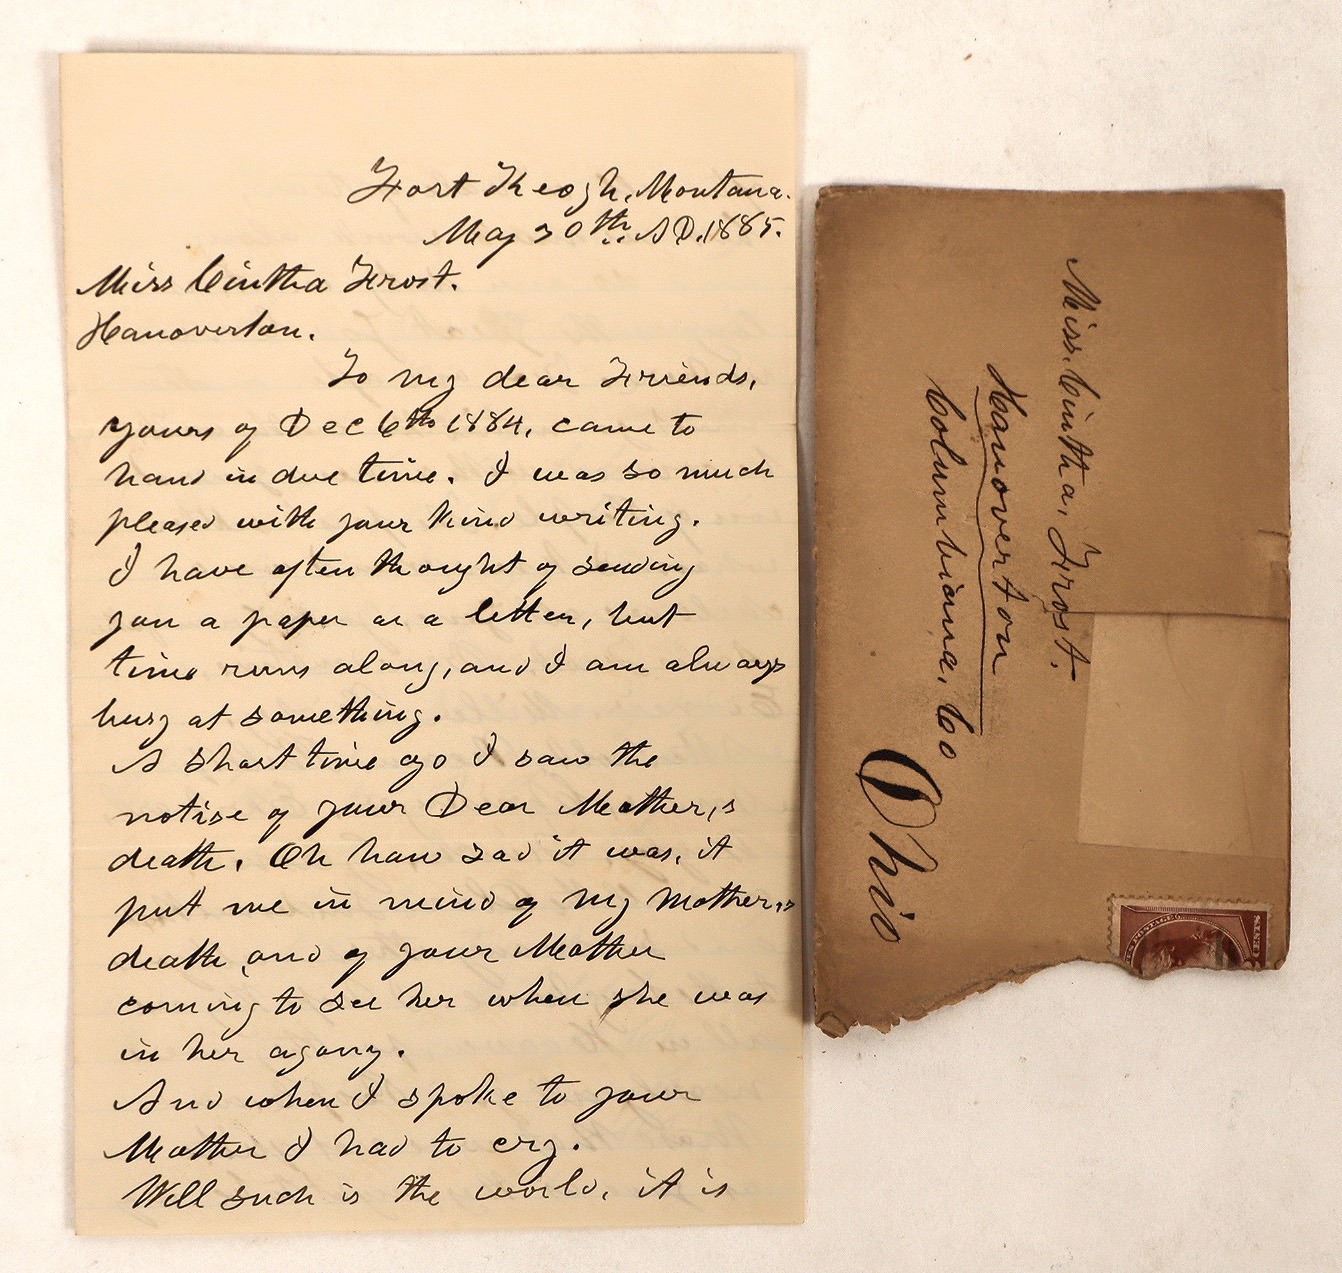 Fort Keogh, Montana.
May 30th A.D. 1885.
Miss Cintha Frost.
Hanoverton.
To my dear Friends,
yours of Dec 6th 1884, came to
hand in due time. I was so much
pleased with your kind writing.
I have often thought of sending
you a paper or a letter, but
time runs along, and I am always
busy at something.
A short time ago I saw the
notise of your Dear Mother,s
death. Oh how sad it was, it
put me in mind of my Mother,s
death, and of your Mother
coming to see her when she was
in her agony.
And when I spoke to your
Mother I had to cry.
Well such is the world, it is
Miss. Cintha, Frost.
Hanoverton
Columbiana, Co
Ohio
POSTAGE
CENTS